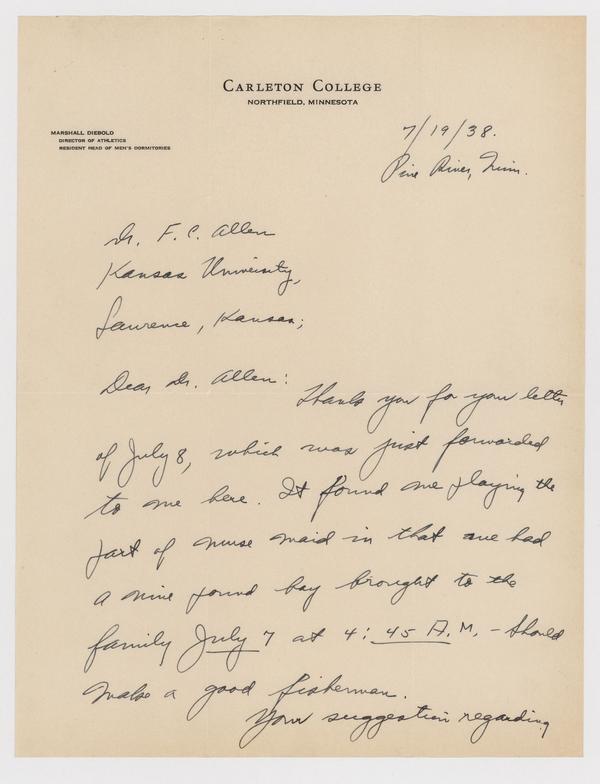 CARLETON COLLEGE
NORTHFIELD, MINNESOTA
MARSHALL DIEBOLD
DIRECTOR OF ATHLETICS
RESIDENT HEAD OF MEN'S DORMITORIES
7/19/38.
Pine River, Minn.
Dr. F. C. Allen
Kansas University,
Lawrence, Kansas;
Dear Dr. Allen:
Thank you for your letter
of July 8, which was just forwarded
to me here. It found me playing the
part of nurse maid in that we had
a nine pound boy brought to the
family July 7 at 4:45 A.M. - Should
make a good fisherman.
Your suggestion regarding